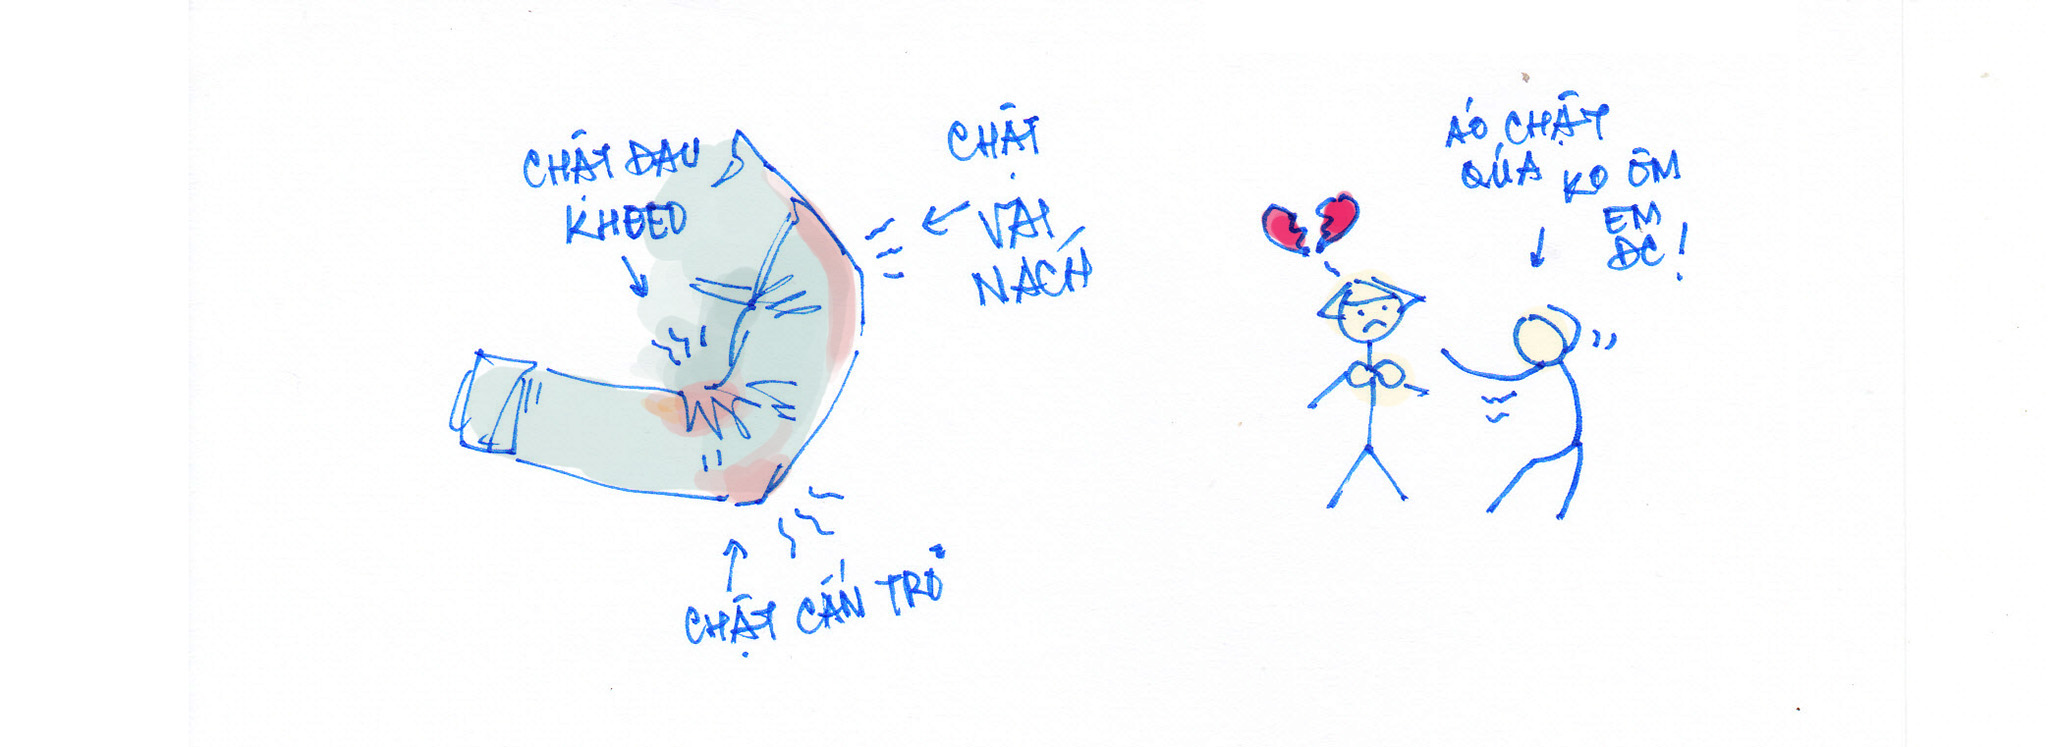 CHẬT ĐAU
KHEEO
CHẬT
VAI
NÁCH
CHẬT CẢN TRỞ
ÁO CHẬT
QÚA KO ÔM
EM
ĐC!